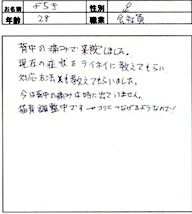 お名前 よしき 性別 ♀
年令 28 職業 会社員
背中の痛みで来院しました。
現在の症状をテイネイに教えてもらい
対応方法も教えてもらいました。
今は背中の痛みは特に出ていません。
猫背調整中です コリにつながるようなので!